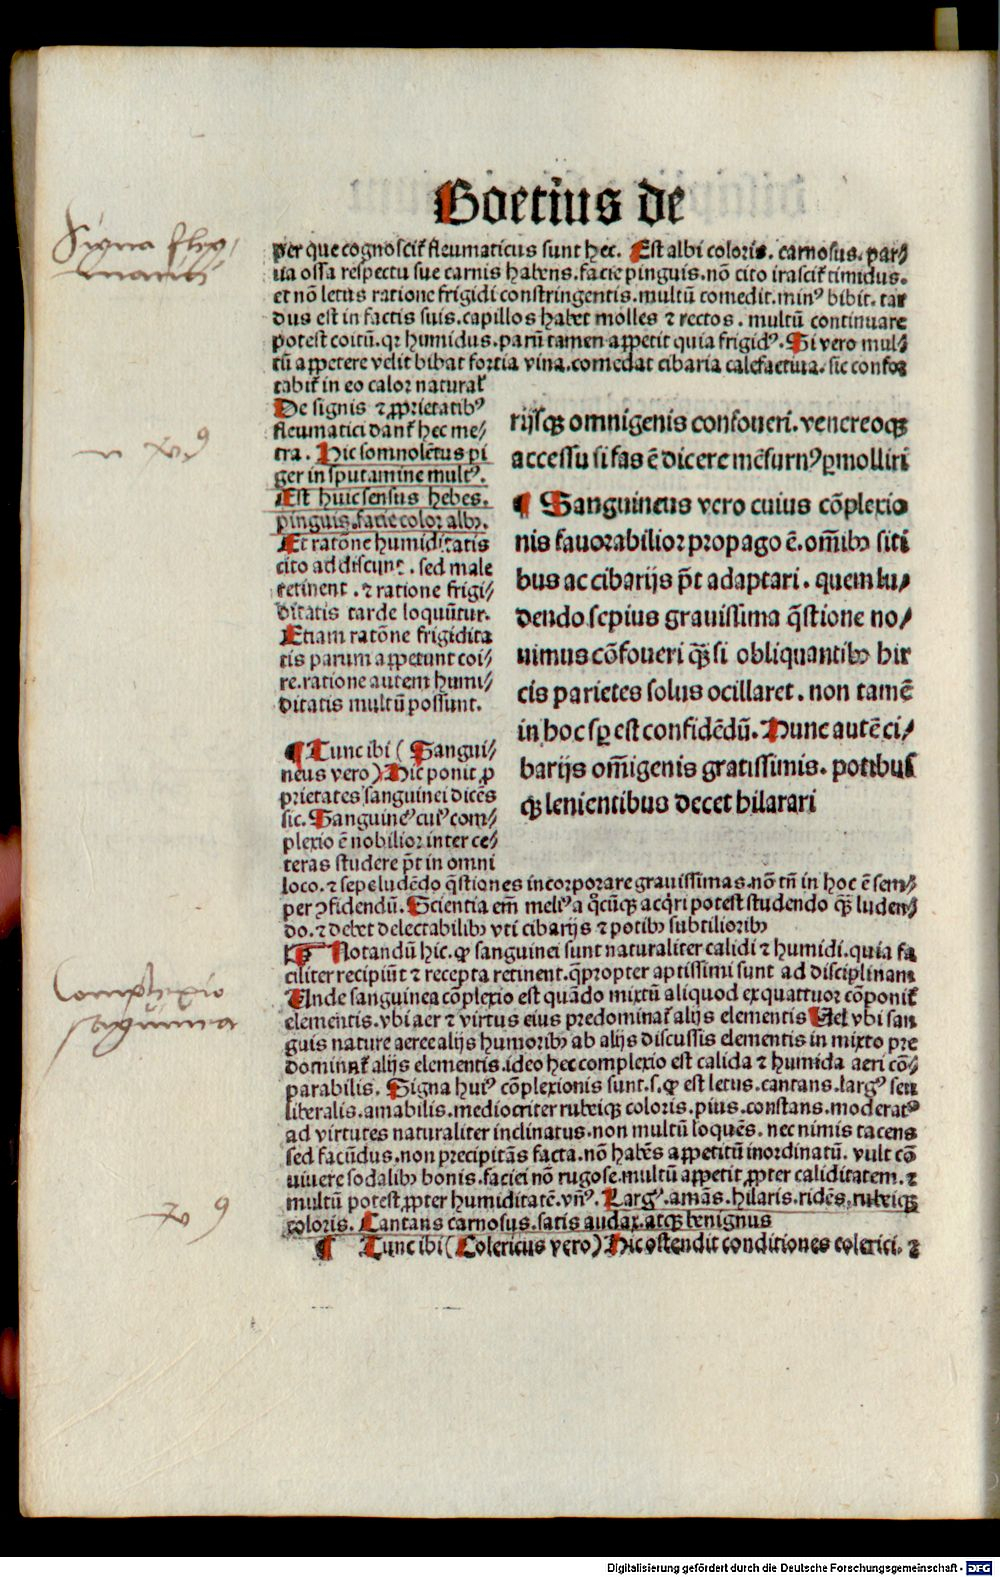 Boetius de
per que cognoscit᷑ fleumaticus sunt hec. Est albi coloris. carnosus. par⸗
ua ossa respectu sue carnis habens. facie pinguis. nō cito irascit᷑ timidus.
et nō letus ratione frigidi constringentis. multū comedit. minꝰ bibit. tar
dus est in factis suis. capillos habet molles ⁊ rectos. multū continuare
potest coitū. qꝛ humidus. parū tamen appetit quia frigidꝰ. Si vero mul⸗
tū appetere velit bibat fortia vina. comedat cibaria calefactiua. sic confor
tabit᷑ in eo calor natural᷑
De signis ⁊ ꝓprietatibꝰ
fleumatici dant᷑ hec me⸗
tra. Hic somnolētus pi
ger in sputamine multꝰ.
Est huic sensus hebes.
pinguis. facie color albꝰ.
Et ratōne humiditatis
cito addiscunt. sed male
retinent. ⁊ ratione frigi⸗
ditatis tarde loquūtur.
Etiam ratōne frigidita
tis parum appetunt coi⸗
re. ratione autem humi⸗
ditatis multū possunt.
rijsqꝫ omnigenis confoueri. venereoqꝫ
accessu si fas ē dicere mēsurnꝰ ꝑmolliri
¶ Sanguineus vero cuius cōplexio
nis fauorabilior propago ē. om̄ibꝫ siti
bus ac cibarijs pōt adaptari. quem lu⸗
dendo sepius grauissima q̄stione no⸗
uimus cōfoueri qꝫ si obliquantibꝫ hir
cis parietes solus ocillaret. non tamē
in hoc sꝑ est confidēdū. Hunc autē ci⸗
barijs om̄igenis gratissimis. potibus
qꝫ lenientibus decet hilarari
¶ Tunc ibi (Sangui⸗
neus vero) Hic ponit ꝓ
prietates sanguinei dicēs
sic. Sanguineꝰ cuiꝰ com⸗
plexio ē nobilior inter ce⸗
teras studere pōt in omni
loco. ⁊ sepe ludēdo q̄stiones incorporare grauissimas. nō tn̄ in hoc ē sem⸗
per ꝯfidendū. Scientia em̄ meliꝰ a q̊cūqꝫ acq̇ri potest studendo qꝫ luden⸗
do. ⁊ debet delectabilibꝫ vti cibarijs ⁊ potibꝫ subtilioribꝫ
¶ Notandū hic. ꝙ sanguinei sunt naturaliter calidi ⁊ humidi. quia fa
ciliter recipiūt ⁊ recepta retinent. qꝓpter aptissimi sunt ad disciplinam
Unde sanguinea cōplexio est quādo mixtū aliquod ex quattuor cōponit᷑
elementis. vbi aer ⁊ virtus eius predominat᷑ alijs elementis Uel vbi san
guis nature aeree alijs humoribꝫ ab alijs discussis elementis in mixto pre
dominat᷑ alijs elementis. ideo hec complexio est calida ⁊ humida aeri cō⸗
parabilis. Signa huiꝰ cōplexionis sunt. s. ꝙ est letus. cantans. largꝰ seu
liberalis. amabilis. mediocriter rubeiqꝫ coloris. pius. constans. moderatꝰ
ad virtutes naturaliter inclinatus. non multū loquēs. nec nimis tacens
sed facūdus. non precipitās facta. nō habēs appetitū inordinatū. vult cō
uiuere sodalibꝫ bonis. faciei nō rugose. multū appetit ꝓpter caliditatem. ⁊
multū potest ꝓpter humiditatē. vnꝰ. Largꝰ. amās. hilaris. ridēs. rubeiqꝫ
coloris. Cantans carnosus. satis audax. atqꝫ benignus
¶ Tunc ibi (Colericus vero) Hic ostendit conditiones colerici. ⁊
Signa fleg⸗
matici
Complexio
sanguinea
Digitalisierung gefördert durch die Deutsche Forschungsgemeinschaft - DFG